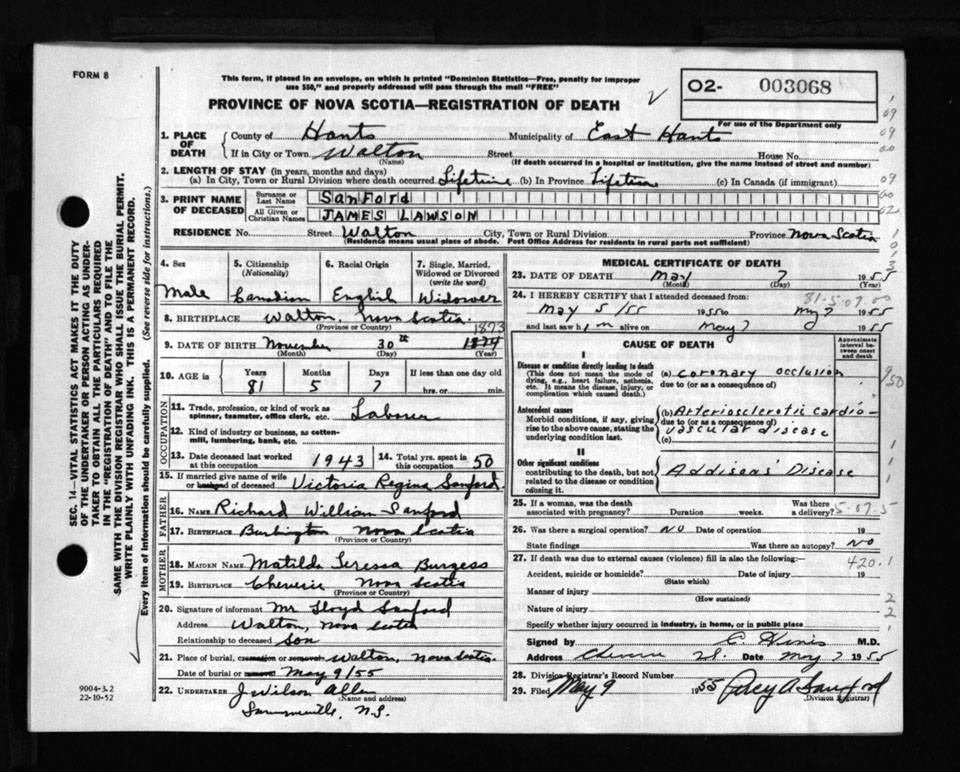 FORM 8
This form, if placed in an envelope, on which is printed "Dominion Statistics—Free, penalty for improper
use $50," and properly addressed will pass through the mail "FREE"
O2- 003068
For use of the Department only
PROVINCE OF NOVA SCOTIA—REGISTRATION OF DEATH
1. PLACE OF DEATH
County of Hants Municipality of East Hants
If in City or Town Walton Street House No.
(Name) (If death occurred in a hospital or institution, give the name instead of street and number)
2. LENGTH OF STAY (in years, months and days)
(a) In City, Town or Rural Division where death occurred Lifetime (b) In Province Lifetime (c) In Canada (if immigrant)
3. PRINT NAME OF DECEASED
Surname or Last Name SANFORd
All Given or Christian Names JAMES LAWSON
RESIDENCE No. Street Walton City, Town or Rural Division Province Nova Scotia
(Residence means usual place of abode. Post Office Address for residents in rural parts not sufficient)
4. Sex
Male
5. Citizenship
(Nationality)
Canadian
6. Racial Origin
English
7. Single, Married, Widowed or Divorced
(write the word)
Widower
8. BIRTHPLACE Walton, Nova Scotia
(Province or Country)
1873
9. DATE OF BIRTH November 30th 1874
(Month) (Day) (Year)
10. AGE in
Years Months Days If less than one day old
81 5 7 hrs. or min.
OCCUPATION
11. Trade, profession, or kind of work as
spinner, teamster, office clerk, etc. Laborer
12. Kind of industry or business, as cotton-
mill, lumbering, bank, etc.
13. Date deceased last worked
at this occupation 1943
14. Total yrs. spent in
this occupation 50
15. If married give name of wife
or husband of deceased Victoria Regina Sanford
FATHER
16. NAME Richard William Sanford
17. BIRTHPLACE Burlington Nova Scotia
(Province or Country)
MOTHER
18. MAIDEN NAME Matilda Teressa Burgess
19. BIRTHPLACE Cheverie Nova Scotia
(Province or Country)
20. Signature of informant Mr Lloyd Sanford
Address Walton, Nova Scotia
Relationship to deceased Son
21. Place of burial, cremation or removal Walton, Nova Scotia
Date of burial or removal May 9/55
22. UNDERTAKER J Wilson Allen
(Name and address)
N.S.
MEDICAL CERTIFICATE OF DEATH
23. DATE OF DEATH May 7 1955
(Month) (Day)
81-5-07.00
24. I HEREBY CERTIFY that I attended deceased from:
May 5/55 1955 to May 7 1955
and last saw him alive on May 7 1955
CAUSE OF DEATH
Approximate interval between onset and death
I
Disease or condition directly leading to death
(This does not mean the mode of dying, e.g., heart failure, asthenia, etc. It means the disease, injury, or complication which caused death.)
(a) coronary occlusion
due to (or as a consequence of)
Antecedent causes
Morbid conditions, if any, giving rise to the above cause, stating the underlying condition last.
(b) Arteriosclerotic cardio-
due to (or as a consequence of)
vascular disease
(c)
II
Other significant conditions
contributing to the death, but not related to the disease or condition causing it.
Addisons' Disease
25. If a woman, was the death
associated with pregnancy? Duration weeks.
Was there a delivery?
26. Was there a surgical operation? No Date of operation 19
State findings Was there an autopsy? No
27. If death was due to external causes (violence) fill in also the following:
420.1
Accident, suicide or homicide? Date of injury 19
(State which)
Manner of injury
(How sustained)
Nature of injury
Specify whether injury occurred in industry, in home, or in public place
Signed by M.D.
Address Cheverie N.S. Date May 7 1955
28. Division Registrar's Record Number
29. Filed May 9 1955 Percy A Sanford
(Division Registrar)
SEC. 14—VITAL STATISTICS ACT MAKES IT THE DUTY
OF THE UNDERTAKER OR PERSON ACTING AS UNDER-
TAKER TO OBTAIN ALL THE PARTICULARS REQUIRED
IN THE "REGISTRATION OF DEATH" AND TO FILE THE
SAME WITH THE DIVISION REGISTRAR WHO SHALL ISSUE THE BURIAL PERMIT.
WRITE PLAINLY WITH UNFADING INK. THIS IS A PERMANENT RECORD.
Every item of information should be carefully supplied. (See reverse side for instructions.)
9004-3.2
22-10-52